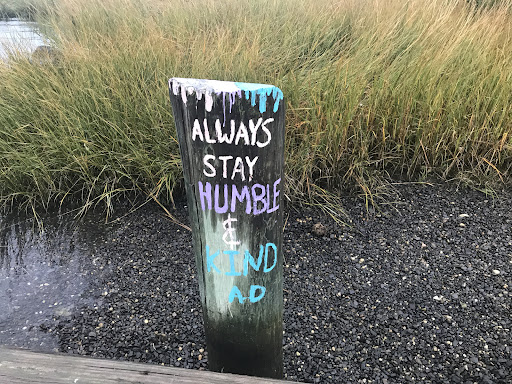 ALWAYS
STAY
HUMBLE
&
KIND
AD